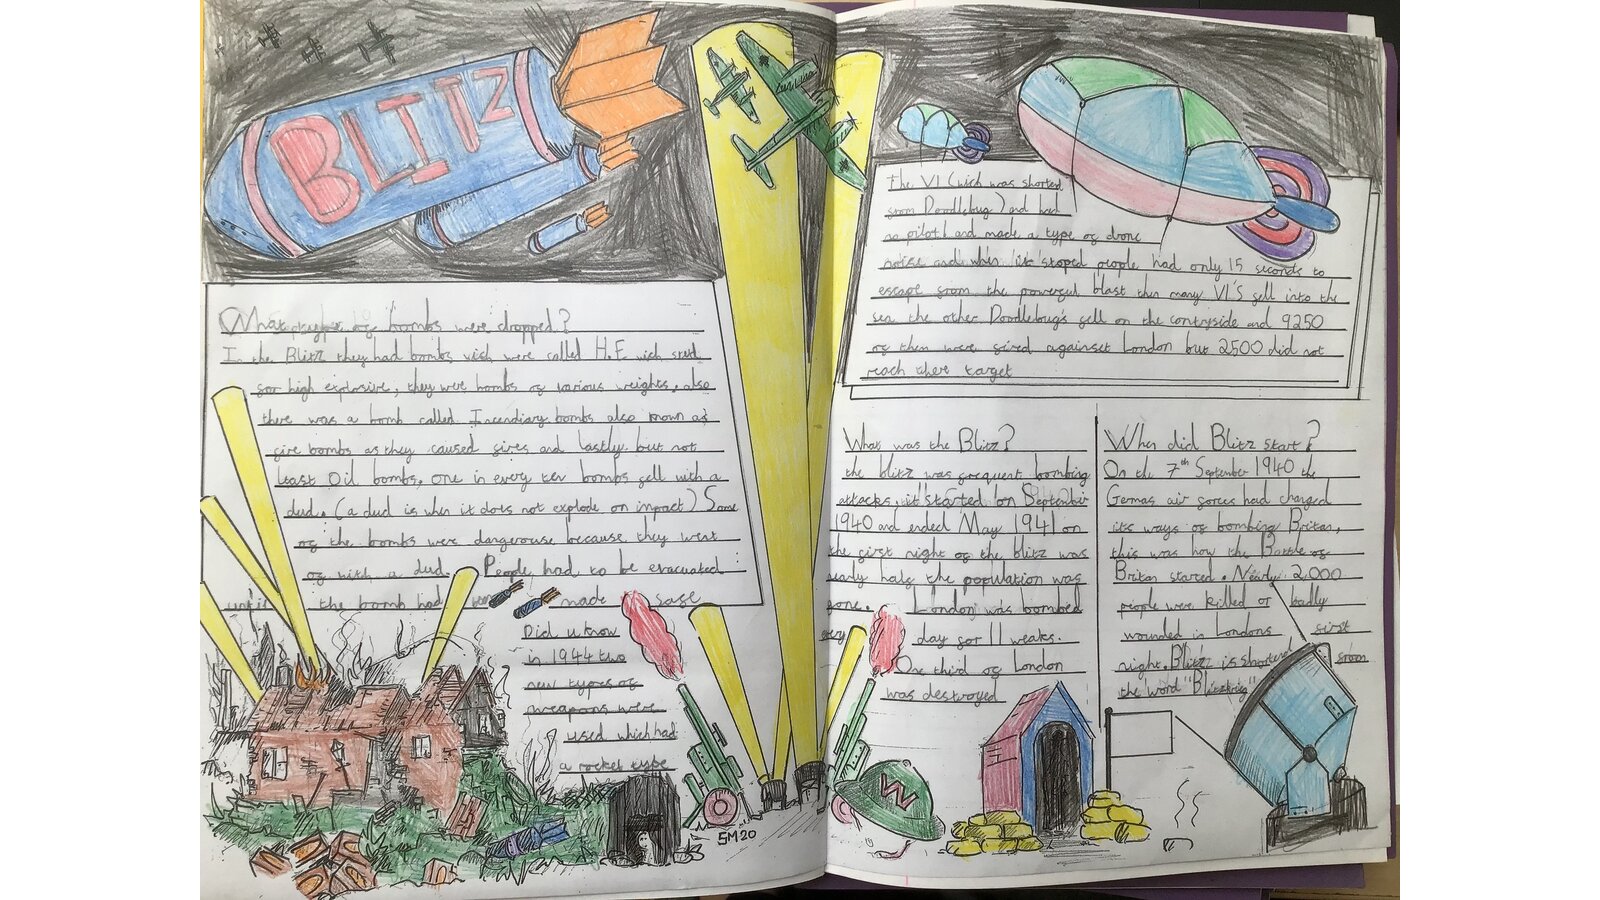 BLITZ
What type of bombs were dropped?
In the Blitz they had bombs wich were called H.E wich sted
for high explosive, they were bombs of various weights, also
there was a bomb called Incendiary bombs also known as
fire bombs as they caused fires and lastly but not
least Oil bombs. one in every ten bombs fell with a
dud. (a dud is when it does not explode on impact) Some
of the bombs were dangerouse because they went
of with a dud. People had to be evacuated
until the bomb had been made safe
Did u know
in 1944 two
new types of
weapons were
used which had
a rocket type
SM20
The V1 (wich was shorted
from Doodlebug) and had
no pilot and made a type of drone
noise and when it stoped people had only 15 seconds to
escape from the powerful blast then many V1'S fell into the
sea the other Doodlebug's fell on the contryside and 9250
of then were fired againset London but 2500 did not
reach there target
What was the Blitz?
the blitz was frequent bombing
attacks, it started on September
1940 and ended May 1941 on
the first night of the blitz was
nearly half the population was
gone. London was bombed
every day for 11 weaks.
One third of London
was destroyed
When did Blitz start?
On the 7th September 1940 the
German air forces had changed
its ways of bombing Britan,
this was how the Battle of
Britan started. Nearly 2,000
people were killed or badly
wounded in Londons first
night. Blitz is shortend from
the word "Blitzkrieg"
W